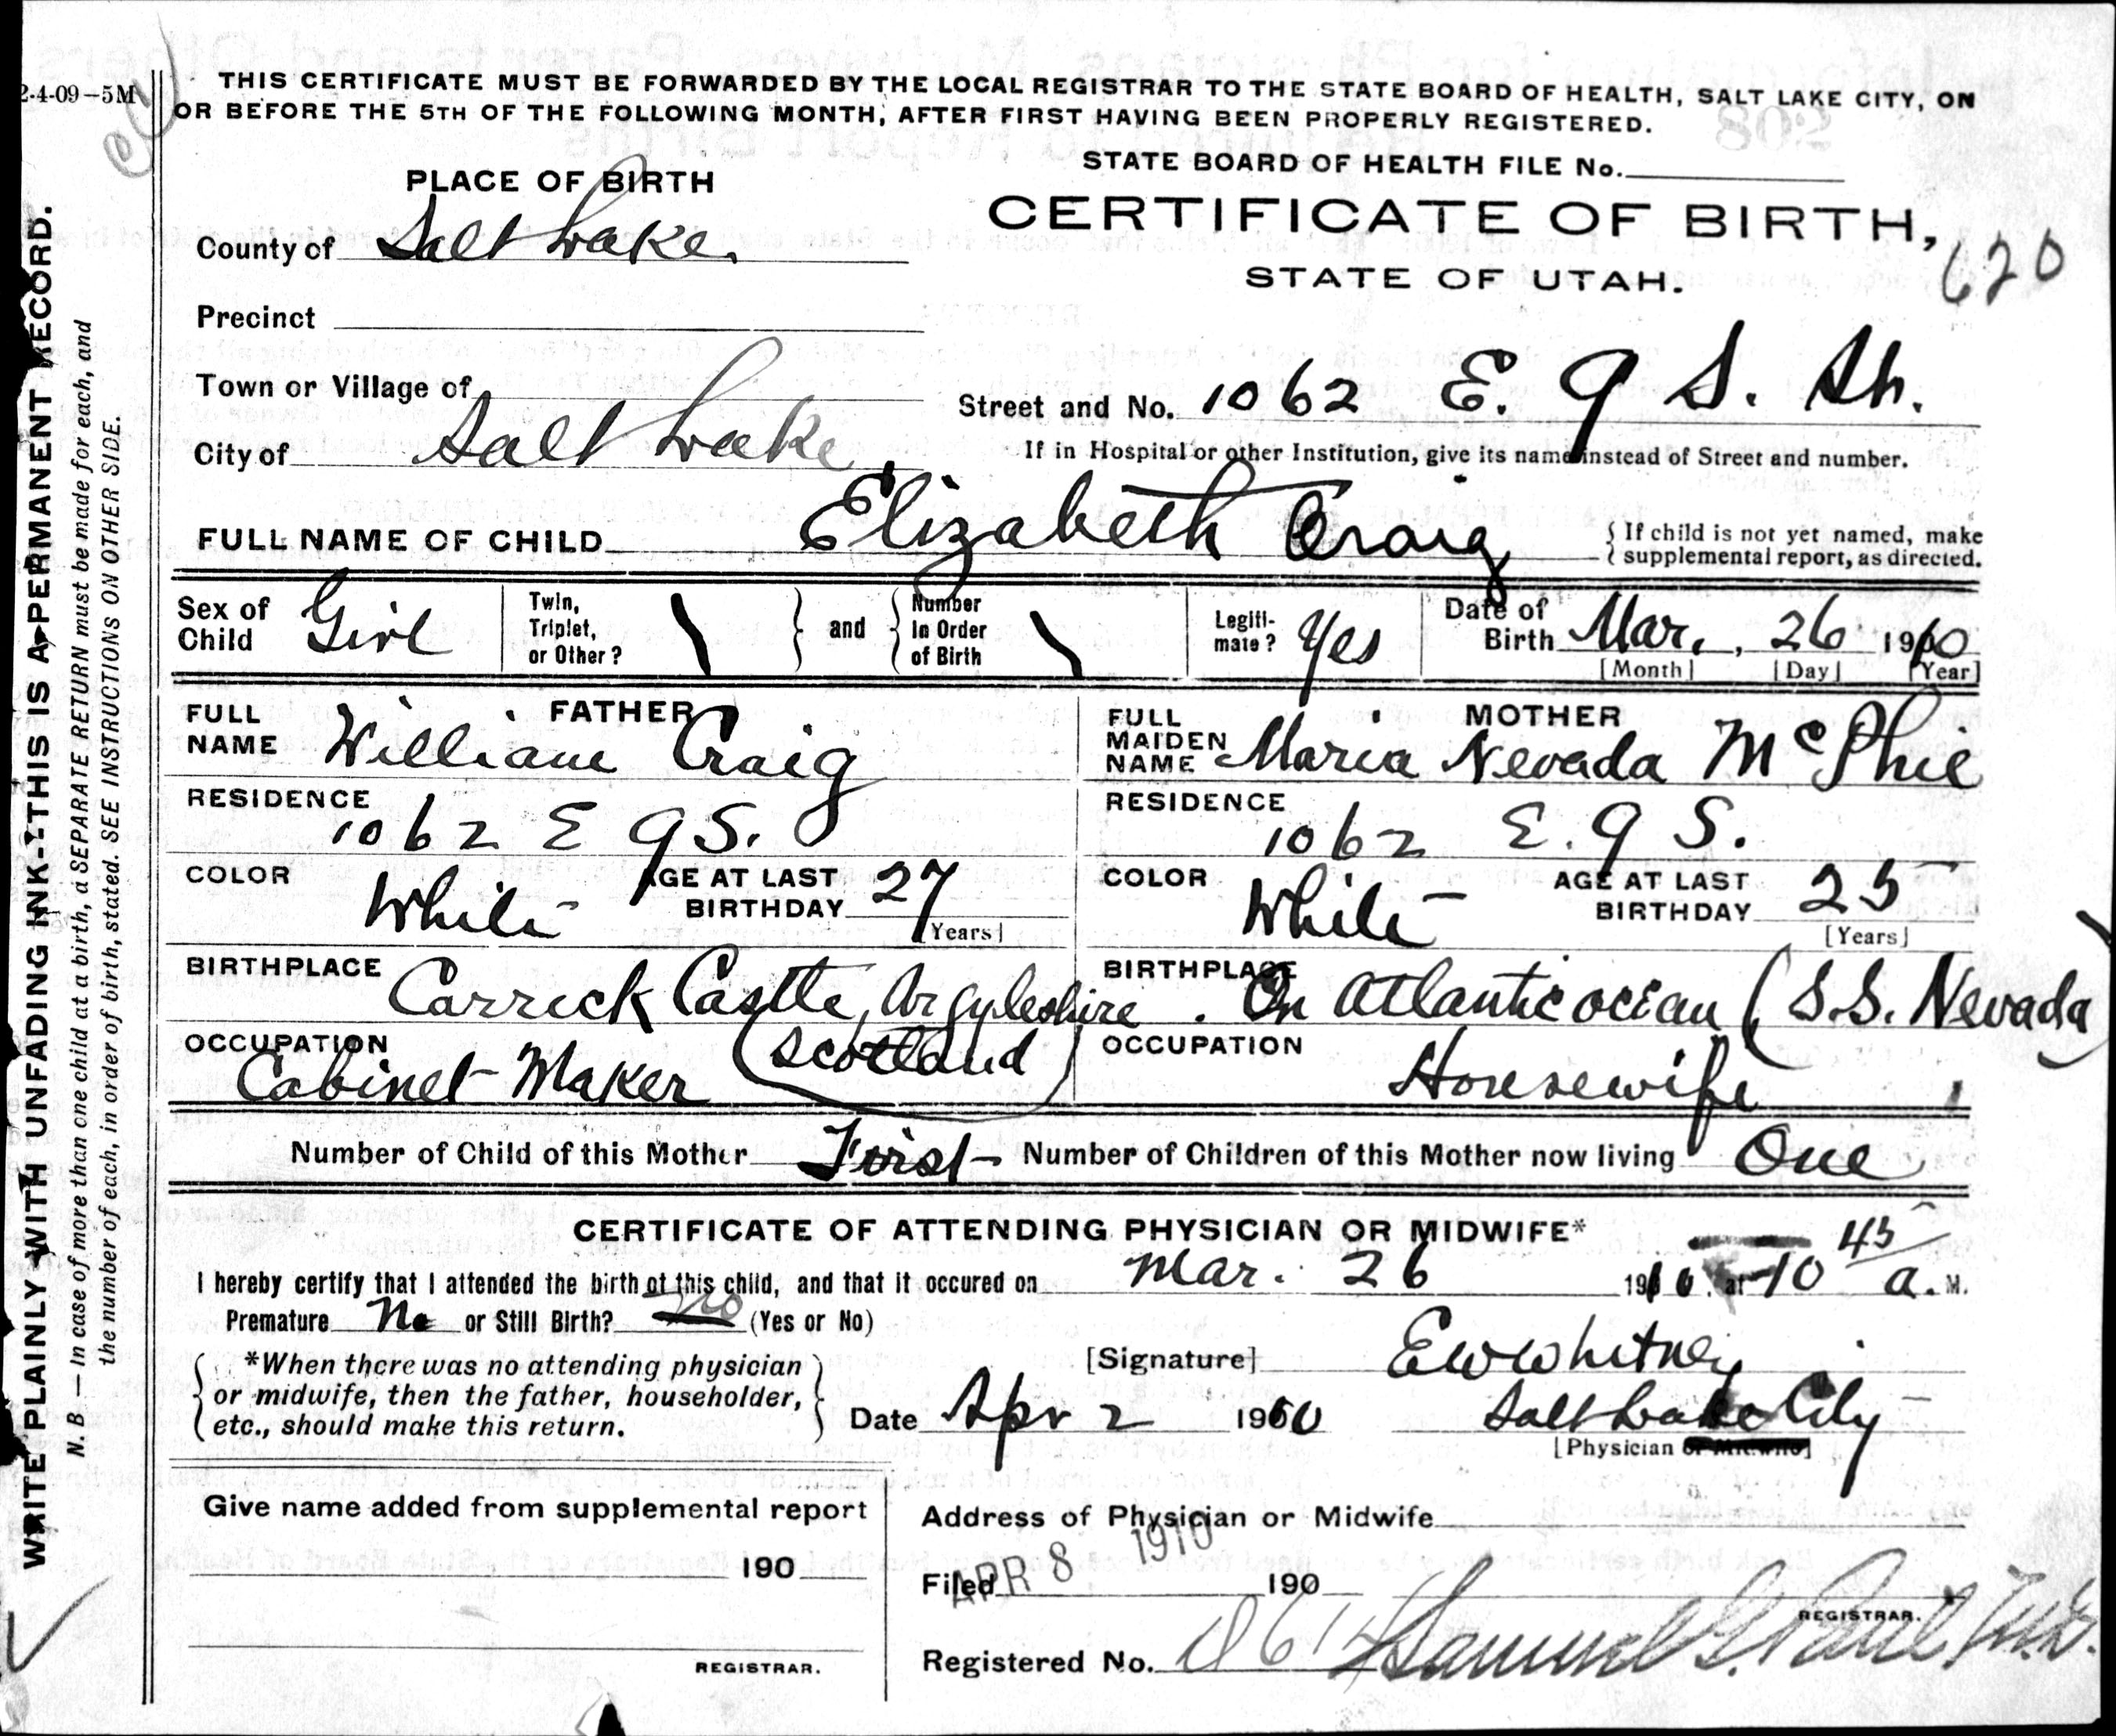 2-4-09-5M
THIS CERTIFICATE MUST BE FORWARDED BY THE LOCAL REGISTRAR TO THE STATE BOARD OF HEALTH, SALT LAKE CITY, ON
OR BEFORE THE 5TH OF THE FOLLOWING MONTH, AFTER FIRST HAVING BEEN PROPERLY REGISTERED.
STATE BOARD OF HEALTH FILE No.
PLACE OF BIRTH
CERTIFICATE OF BIRTH,
STATE OF UTAH.
620
County of Salt Lake
Precinct
Town or Village of
Street and No. 1062 E. 9 S. St.
City of Salt Lake
If in Hospital or other Institution, give its name instead of Street and number.
FULL NAME OF CHILD Elizabeth Craig
{ If child is not yet named, make
{ supplemental report, as directed.
Sex of Child Girl
Twin, Triplet, or Other? \ } and { Number In Order of Birth \
Legiti-mate? Yes
Date of Birth Mar., 26 1910
[Month] [Day] [Year]
FATHER
FULL NAME William Craig
MOTHER
FULL MAIDEN NAME Maria Nevada McPhie
RESIDENCE 1062 E 9 S.
RESIDENCE 1062 E. 9 S.
COLOR White AGE AT LAST BIRTHDAY 27 [Years]
COLOR White AGE AT LAST BIRTHDAY 25 [Years]
BIRTHPLACE Carrick Castle, Argyleshire (Scotland)
BIRTHPLACE On Atlantic ocean (S.S. Nevada)
OCCUPATION Cabinet Maker
OCCUPATION Housewife
Number of Child of this Mother First Number of Children of this Mother now living One
CERTIFICATE OF ATTENDING PHYSICIAN OR MIDWIFE*
I hereby certify that I attended the birth of this child, and that it occured on Mar. 26 1910, at 10 45 a. M.
Premature No or Still Birth? No (Yes or No)
*When there was no attending physician
or midwife, then the father, householder,
etc., should make this return.
[Signature] E W Whitney
Date Apr 2 1910 Salt Lake City
[Physician or Midwife]
Give name added from supplemental report
190
REGISTRAR.
Address of Physician or Midwife
Filed APR 8 1910 190
REGISTRAR.
Registered No.
WRITE PLAINLY WITH UNFADING INK--THIS IS A PERMANENT RECORD.
N. B — In case of more than one child at a birth, a SEPARATE RETURN must be made for each, and
the number of each, in order of birth, stated. SEE INSTRUCTIONS ON OTHER SIDE.